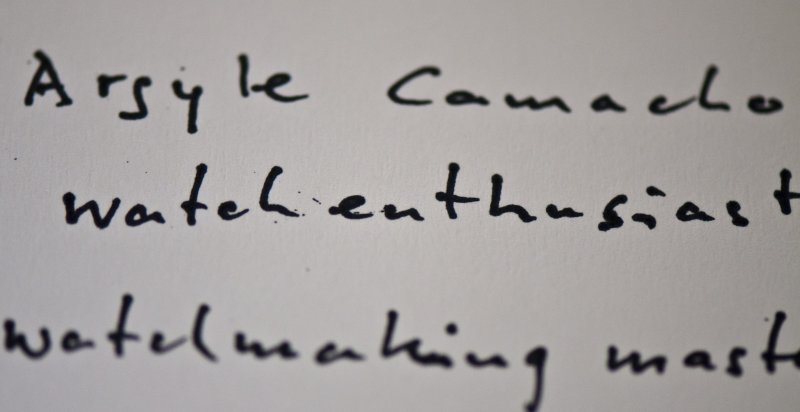 Argyle Camacho
watch enthusiast
watchmaking maste